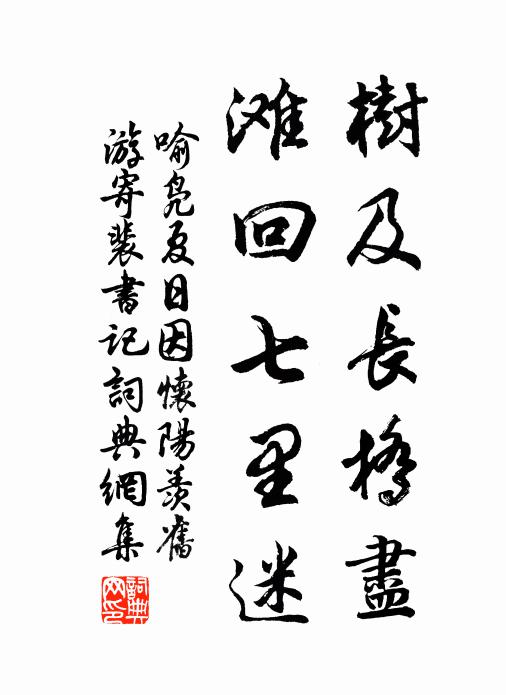 樹及長橋盡
滩回七里迷
喻凫夏日因懷陽羨舊
游寄裴書記詞典網集
詞典
网印